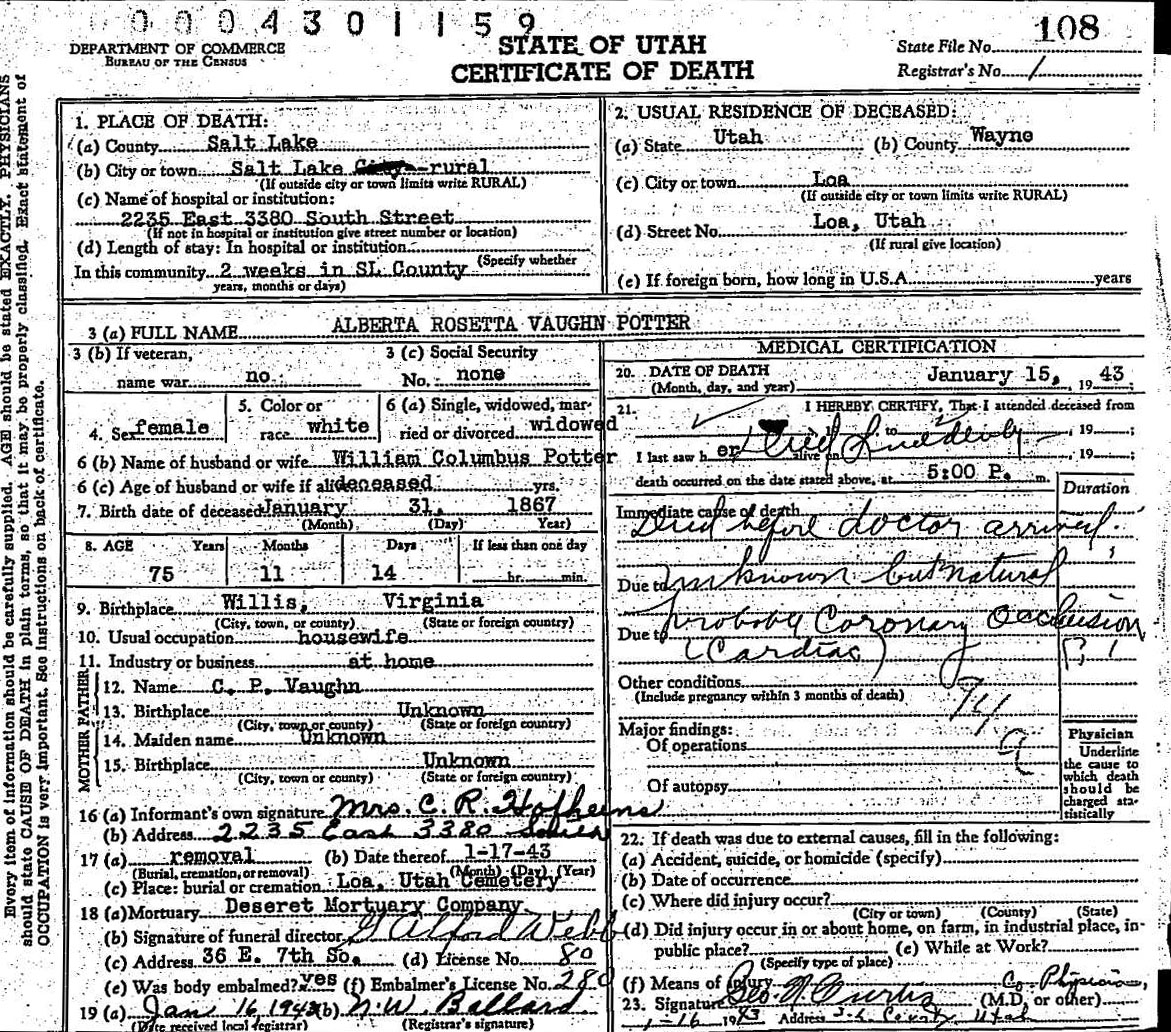 0004301159
108
DEPARTMENT OF COMMERCE
BUREAU OF THE CENSUS
STATE OF UTAH
CERTIFICATE OF DEATH
State File No.
Registrar's No. 1
Every item of information should be carefully supplied. AGE should be stated EXACTLY. PHYSICIANS
should state CAUSE OF DEATH in plain terms, so that it may be properly classified. Exact statement of
OCCUPATION is very important. See instructions on back of certificate.
1. PLACE OF DEATH:
(a) County Salt Lake
(b) City or town Salt Lake City--rural
(If outside city or town limits write RURAL)
(c) Name of hospital or institution:
2235 East 3380 South Street
(If not in hospital or institution give street number or location)
(d) Length of stay: In hospital or institution
(Specify whether
In this community 2 weeks in SL County
years, months or days)
2. USUAL RESIDENCE OF DECEASED:
(a) State Utah (b) County Wayne
(c) City or town Loa
(If outside city or town limits write RURAL)
(d) Street No. Loa, Utah
(If rural give location)
(e) If foreign born, how long in U.S.A. years
3 (a) FULL NAME ALBERTA ROSETTA VAUGHN POTTER
3 (b) If veteran, 3 (c) Social Security
name war no No. none
4. Sex female
5. Color or
race white
6 (a) Single, widowed, mar-
ried or divorced widowed
6 (b) Name of husband or wife William Columbus Potter
6 (c) Age of husband or wife if alive deceased yrs.
7. Birth date of deceased January 31, 1867
(Month) (Day) Year)
8. AGE Years Months Days If less than one day
75 11 14 hr. min.
9. Birthplace Willis, Virginia
(City, town, or county) (State or foreign country)
10. Usual occupation housewife
11. Industry or business at home
FATHER
12. Name C. P. Vaughn
13. Birthplace Unknown
(City, town or county) (State or foreign country)
MOTHER
14. Maiden name Unknown
15. Birthplace Unknown
(City, town or county) (State or foreign country)
16 (a) Informant's own signature Mrs. C. R. Hofheins
(b) Address 2235 East 3380 South
17 (a) removal (b) Date thereof 1-17-43
(Burial, cremation, or removal) (Month) (Day) (Year)
(c) Place: burial or cremation Loa, Utah Cemetery
18 (a) Mortuary Deseret Mortuary Company
(b) Signature of funeral director G Alford Webb
(c) Address 36 E. 7th So. (d) License No. 80
(e) Was body embalmed? yes (f) Embalmer's License No. 280
19 (a) Jan 16, 1943 (b) N. W. Ballard
(Date received local registrar) (Registrar's signature)
MEDICAL CERTIFICATION
20. DATE OF DEATH January 15, 19 43
(Month, day, and year)
21. I HEREBY CERTIFY, That I attended deceased from
, 19 to , 19 ;
I last saw h er alive on Died Suddenly , 19 ;
death occurred on the date stated above, at 5:00 P. m.
Duration
Immediate cause of death
Died before doctor arrived.
Due to Unknown but natural
Due to probably Coronary Occlusion
(Cardiac)
Other conditions
(Include pregnancy within 3 months of death)
94
a
Major findings:
Of operations
Of autopsy
Physician
Underline
the cause to
which death
should be
charged sta-
tistically
22. If death was due to external causes, fill in the following:
(a) Accident, suicide, or homicide (specify)
(b) Date of occurrence
(c) Where did injury occur?
(City or town) (County) (State)
(d) Did injury occur in or about home, on farm, in industrial place, in
public place? (e) While at Work?
(Specify type of place)
(f) Means of injury Co. Physician,
23. Signature Geo. N Curtis (M.D. or other)
1-16 1943 Address S-L County Utah